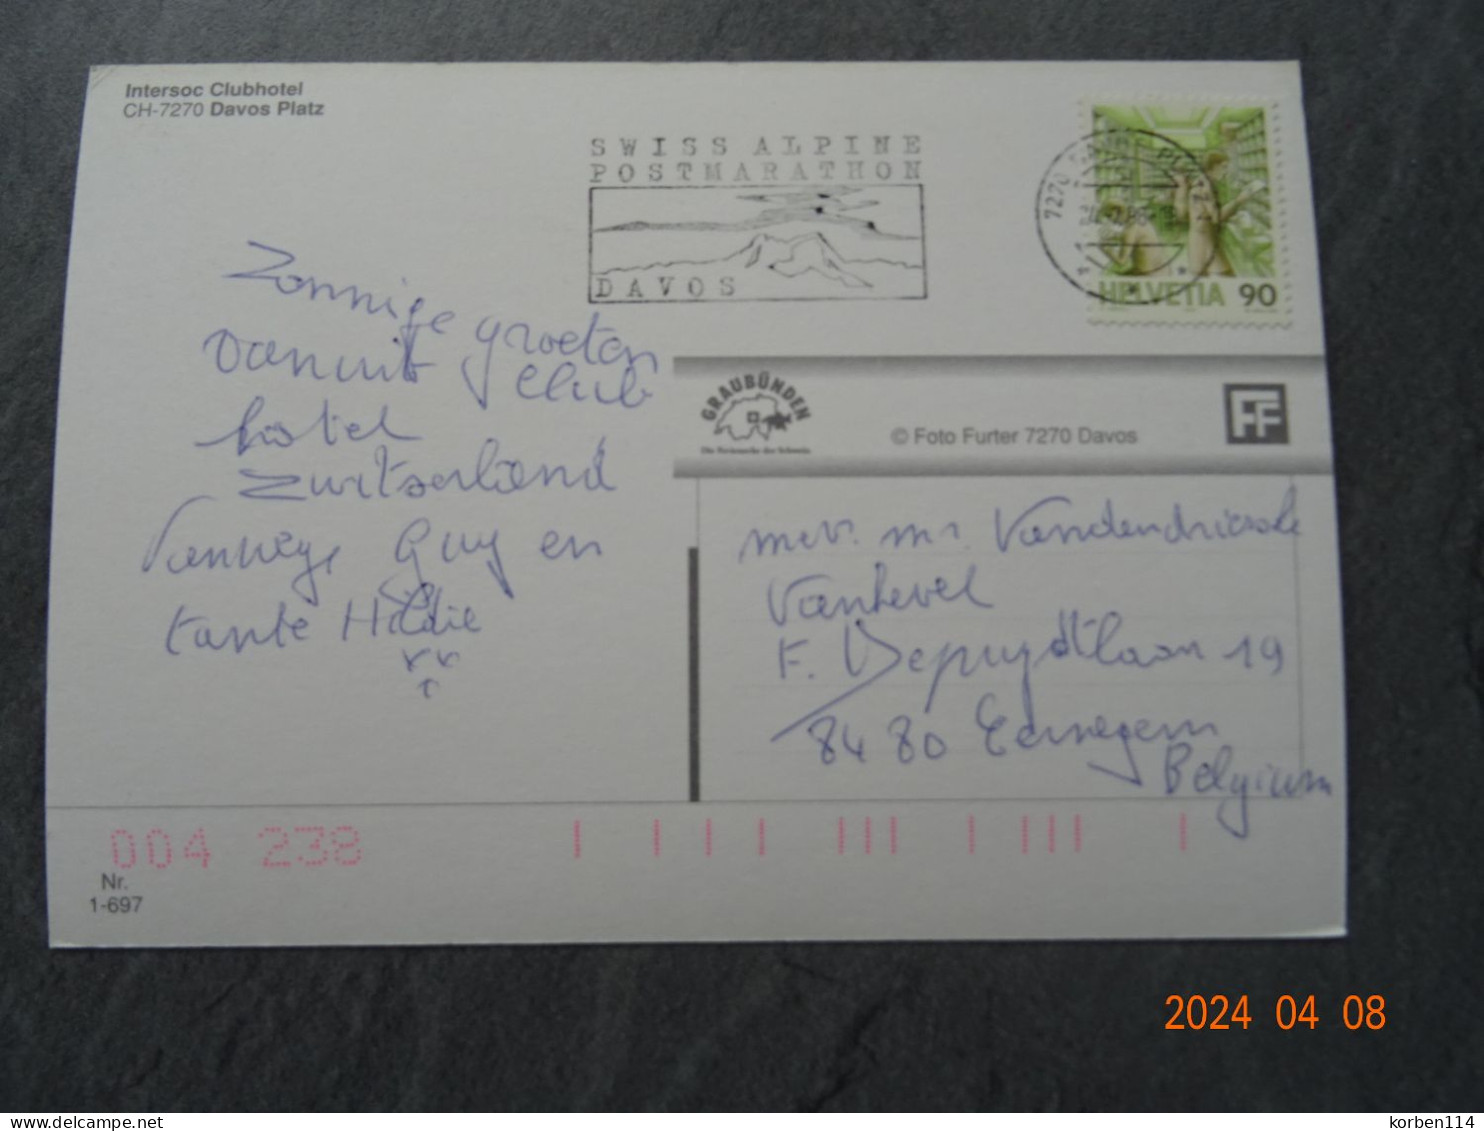 Intersoc Clubhotel
CH-7270 Davos Platz
SWISS ALPINE
POSTMARATHON
DAVOS
7270
HELVETIA 90
Zonnige groeten
vanuit Club
hotel
Zwitserland
Vanwege Guy en
tante Hildie
GRAUBÜNDEN
Die Ferienecke der Schweiz
© Foto Furter 7270 Davos
FF
mev. mr. Vandendriessche
Vanhevel
F. Depuydtlaan 19
8480 Eernegem
Belgium
004 238
Nr.
1-697
2024 04 08
delcampe.net
korben114